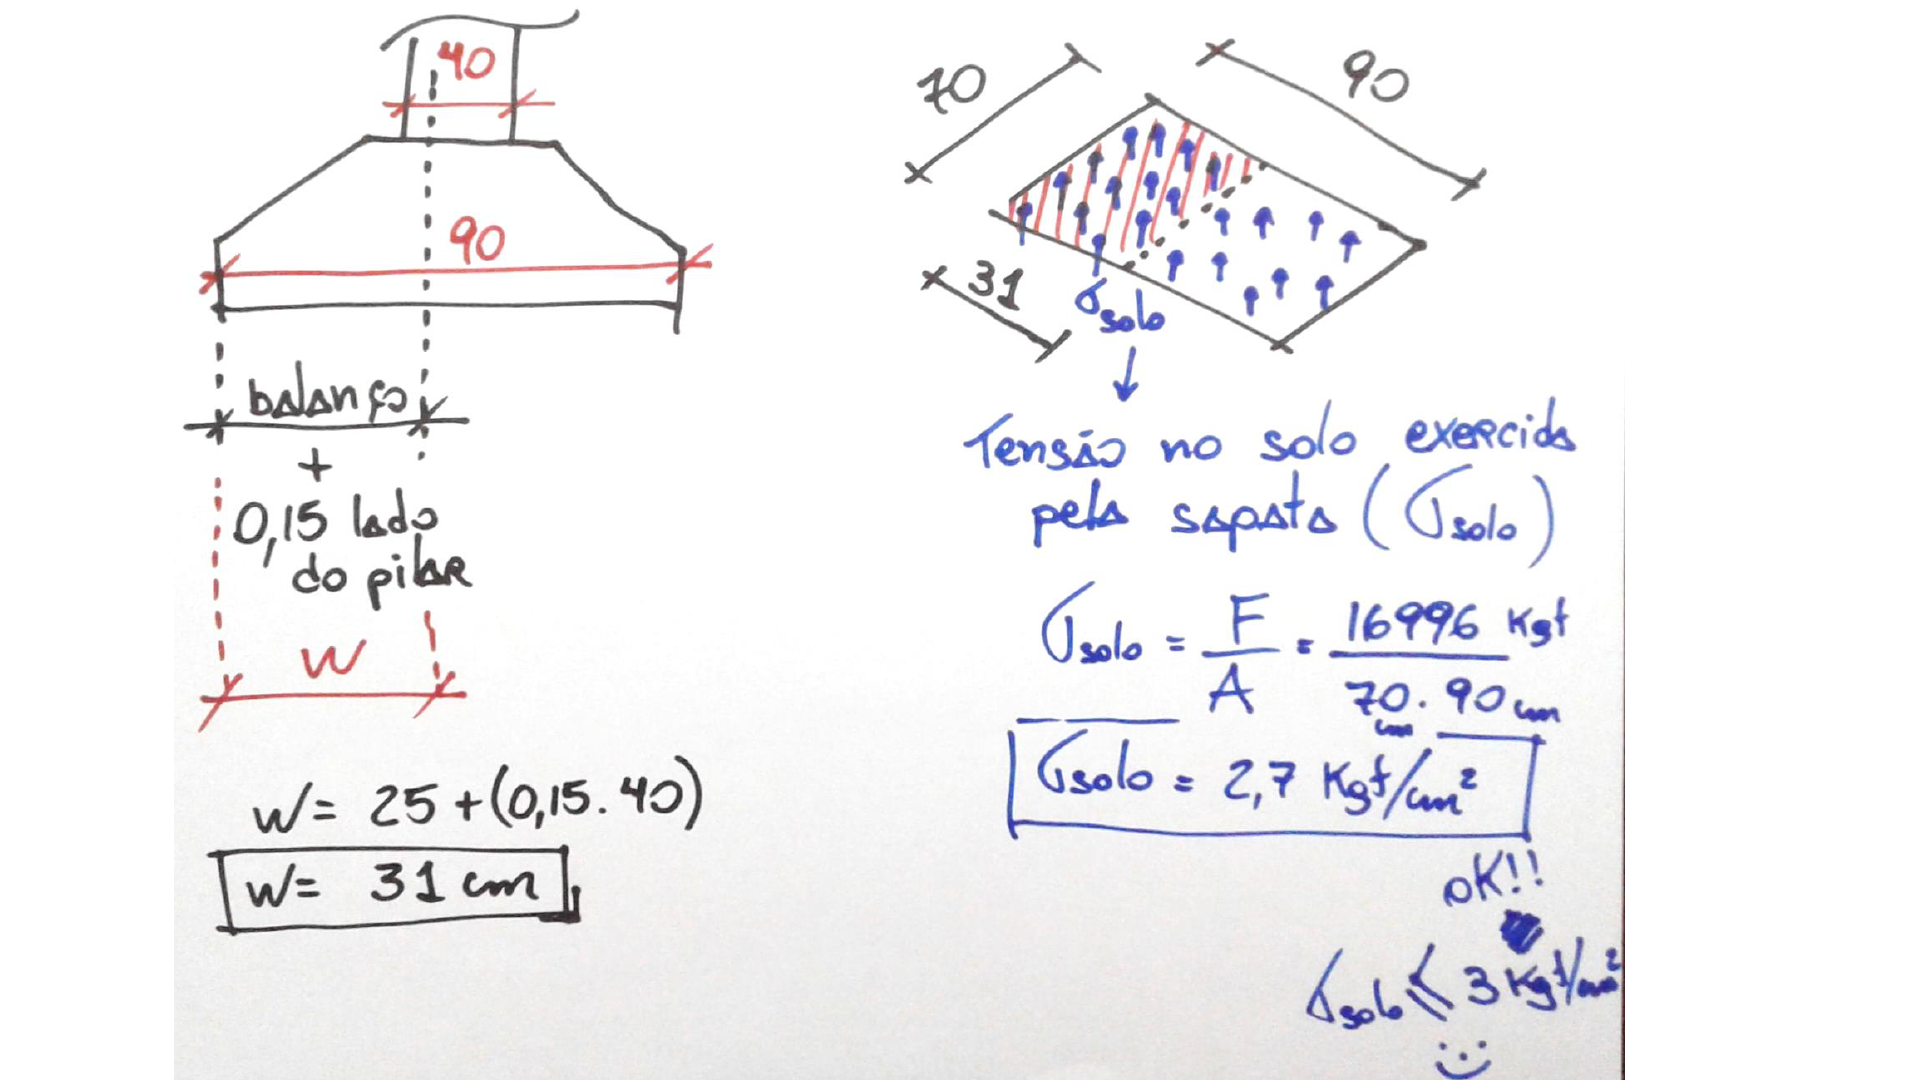 40
90
balanço
+
0,15 lado
do pilar
W
W= 25 + (0,15 . 40)
W= 31 cm
70
90
31
σsolo
↓
Tensão no solo exercida
pela sapata (σsolo)
σsolo = F/A = 16996 Kgf / 70 cm . 90 cm
σsolo = 2,7 Kgf/cm²
OK!!
σsolo ≤ 3 Kgf/cm²